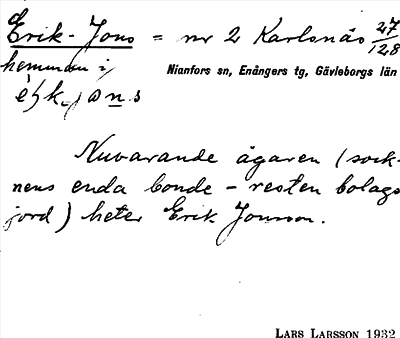 Erik-Jons = nr 2 Karlsnäs 27/128
hemman i
Nianfors sn, Enångers tg, Gävleborgs län
Nuvarande ägaren (sock-
nens enda bonde - resten bolags
jord) heter Erik Jonsson.
LARS LARSSON 1932